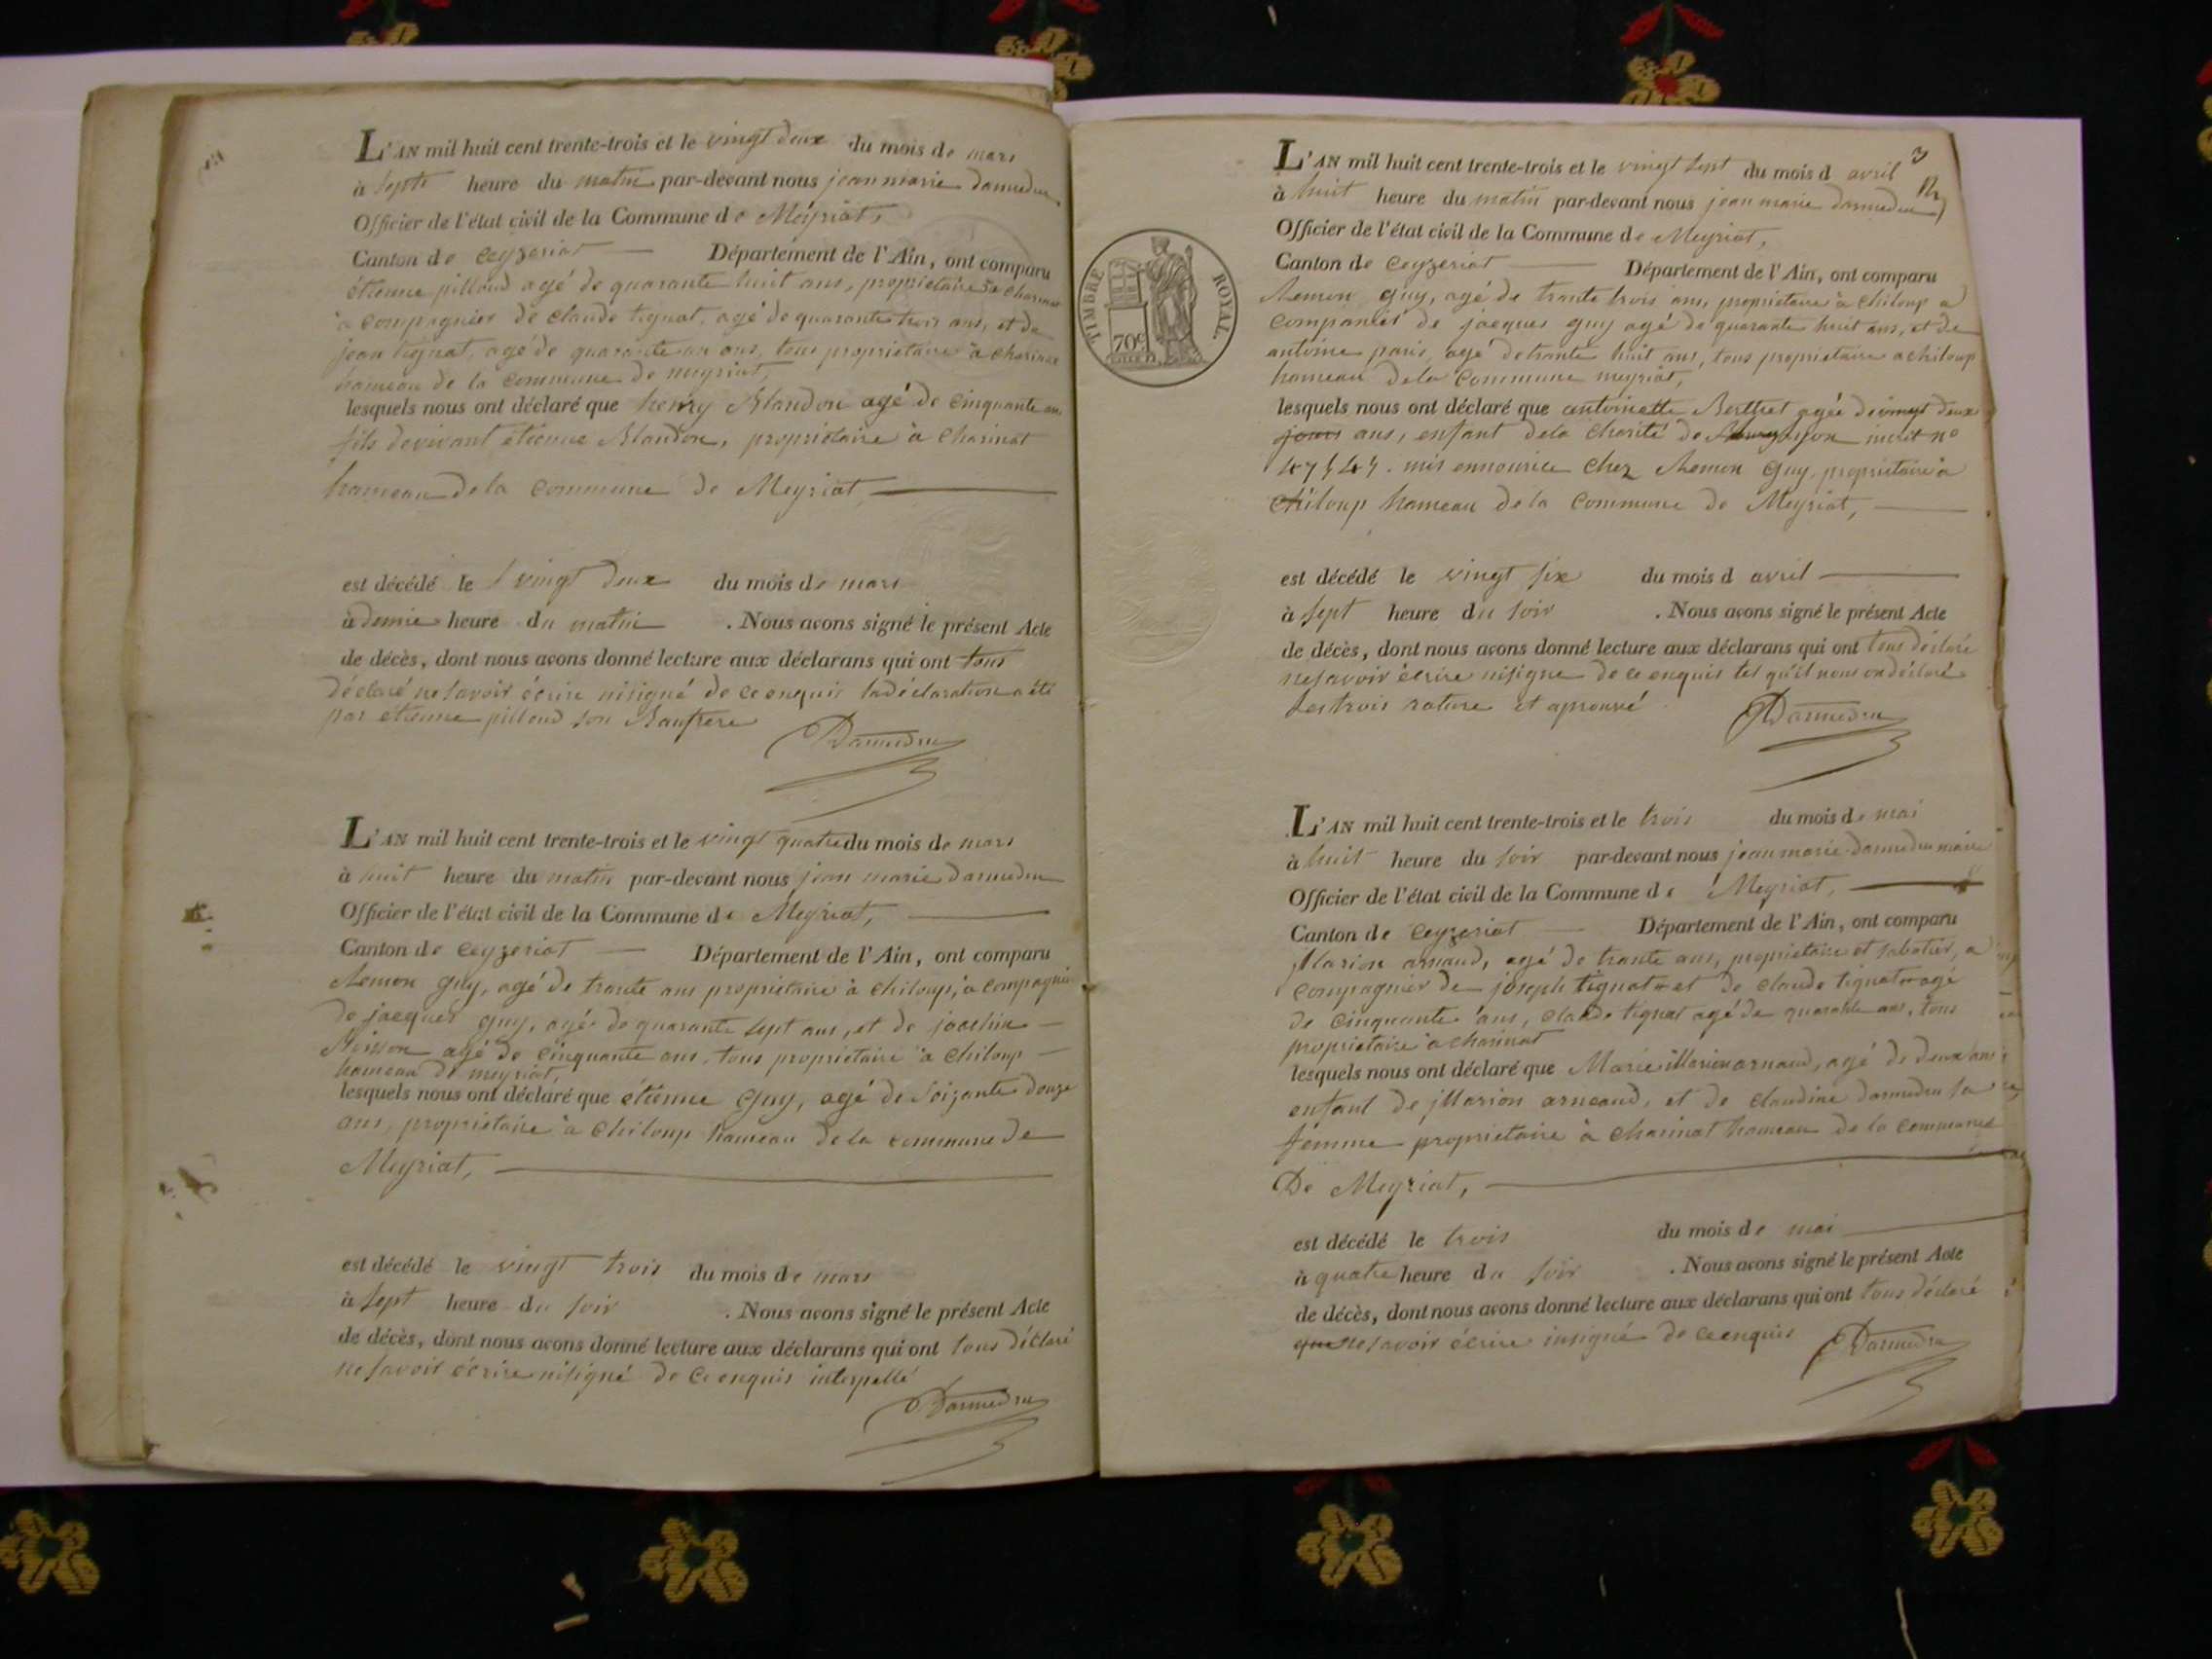 L'AN mil huit cent trente-trois et le vingt deux du mois de mars
à sept heure du matin par-devant nous jean marie darmedru
Officier de l'état civil de la Commune de Meyriat,
Canton de Ceyzeriat Département de l'Ain, ont comparu
étienne pilloud agé de quarante huit ans, propriétaire a charinat
a compagnier de claude tignat, agé de quarante trois ans, et de
jean tignat, agé de quarante un ans, tous propriétaire a charinat
hameau de la commune de meyriat,
lesquels nous ont déclaré que henry Blandon agé de cinquante ans
fils devivant étienne Blandon, propriétaire à Charinat
hameau dela commune de Meyriat,
est décédé le vingt deux du mois de mars
à demie heure du matin . Nous avons signé le présent Acte
de décès, dont nous avons donné lecture aux déclarans qui ont tous
déclaré ne savoir écrire nisigné de ce enquis ladéclaration a été
par etienne pilloud son Baufrere
Darmedru
L'AN mil huit cent trente-trois et le vingt quatre du mois de mars
à huit heure du matin par-devant nous jean marie darmedru
Officier de l'état civil de la Commune de Meyriat,
Canton de Ceyzeriat Département de l'Ain, ont comparu
guy, agé de trante ans propriétaire à chiloup, a compagnier
de jacques guy, agé de quarante sept ans, et de joachim
agé de cinquante ans, tous propriétaire à chiloup
hameau de meyriat,
lesquels nous ont déclaré que étienne Guy, agé de soizante douze
ans, propriétaire à chiloup hameau dela commune de
Meyriat,
est décédé le vingt trois du mois de mars
à sept heure du soir . Nous avons signé le présent Acte
de décès, dont nous avons donné lecture aux déclarans qui ont tous déclaré
ne savoir écrire nisigné de ce enquis interpellé
Darmedru
3
L'AN mil huit cent trente-trois et le vingt sept du mois d avril
à huit heure du matin par-devant nous jean marie darmedru
Officier de l'état civil de la Commune de Meyriat,
Canton de Ceyzeriat Département de l'Ain, ont comparu
guy, agé de trante trois ans, propriétaire à chiloup a
companier de jacques guy agé de quarante huit ans, et de
antoine paris, agé de trante huit ans, tous propriétaire a chiloup
hameau dela commune meyriat,
TIMBRE ROYAL.
70c
lesquels nous ont déclaré que antoinette Berthet agée de vingt deux
jours ans, enfant dela charité de lyon inscrit no
mis ennourice chez guy, propriétaire à
chiloup hameau de la commune de Meyriat,
est décédé le vingt six du mois d avril
à sept heure du soir . Nous avons signé le présent Acte
de décès, dont nous avons donné lecture aux déclarans qui ont tous déclaré
ne savoir écrire nisigne de ce enquis tel qu'il nous on déclaré
les trois rature et aprouvé
Darmedru
L'AN mil huit cent trente-trois et le trois du mois de mai
à huit heure du soir par-devant nous jean marie darmedru maire
Officier de l'état civil de la Commune de Meyriat,
Canton de Ceyzeriat Département de l'Ain, ont comparu
illarion arnaud, agé de trante ans, propriétaire et sabotier, a
compagnier de joseph tignat et de claude tignat agé
de cinquante ans, claude tignat agé de quarante ans, tous
propriétaire à charinat
lesquels nous ont déclaré que Marie illarion arnaud, agé de deux ans
enfant de illarion arneaud, et de claudine darmedru sa
femme propriétaire à charinat hameau de la commune
De Meyriat,
est décédé le trois du mois de mai
à quatre heure du soir . Nous avons signé le présent Acte
de décès, dont nous avons donné lecture aux déclarans qui ont tous déclaré
que ne savoir écrire insigné de ce enquis
Darmedru